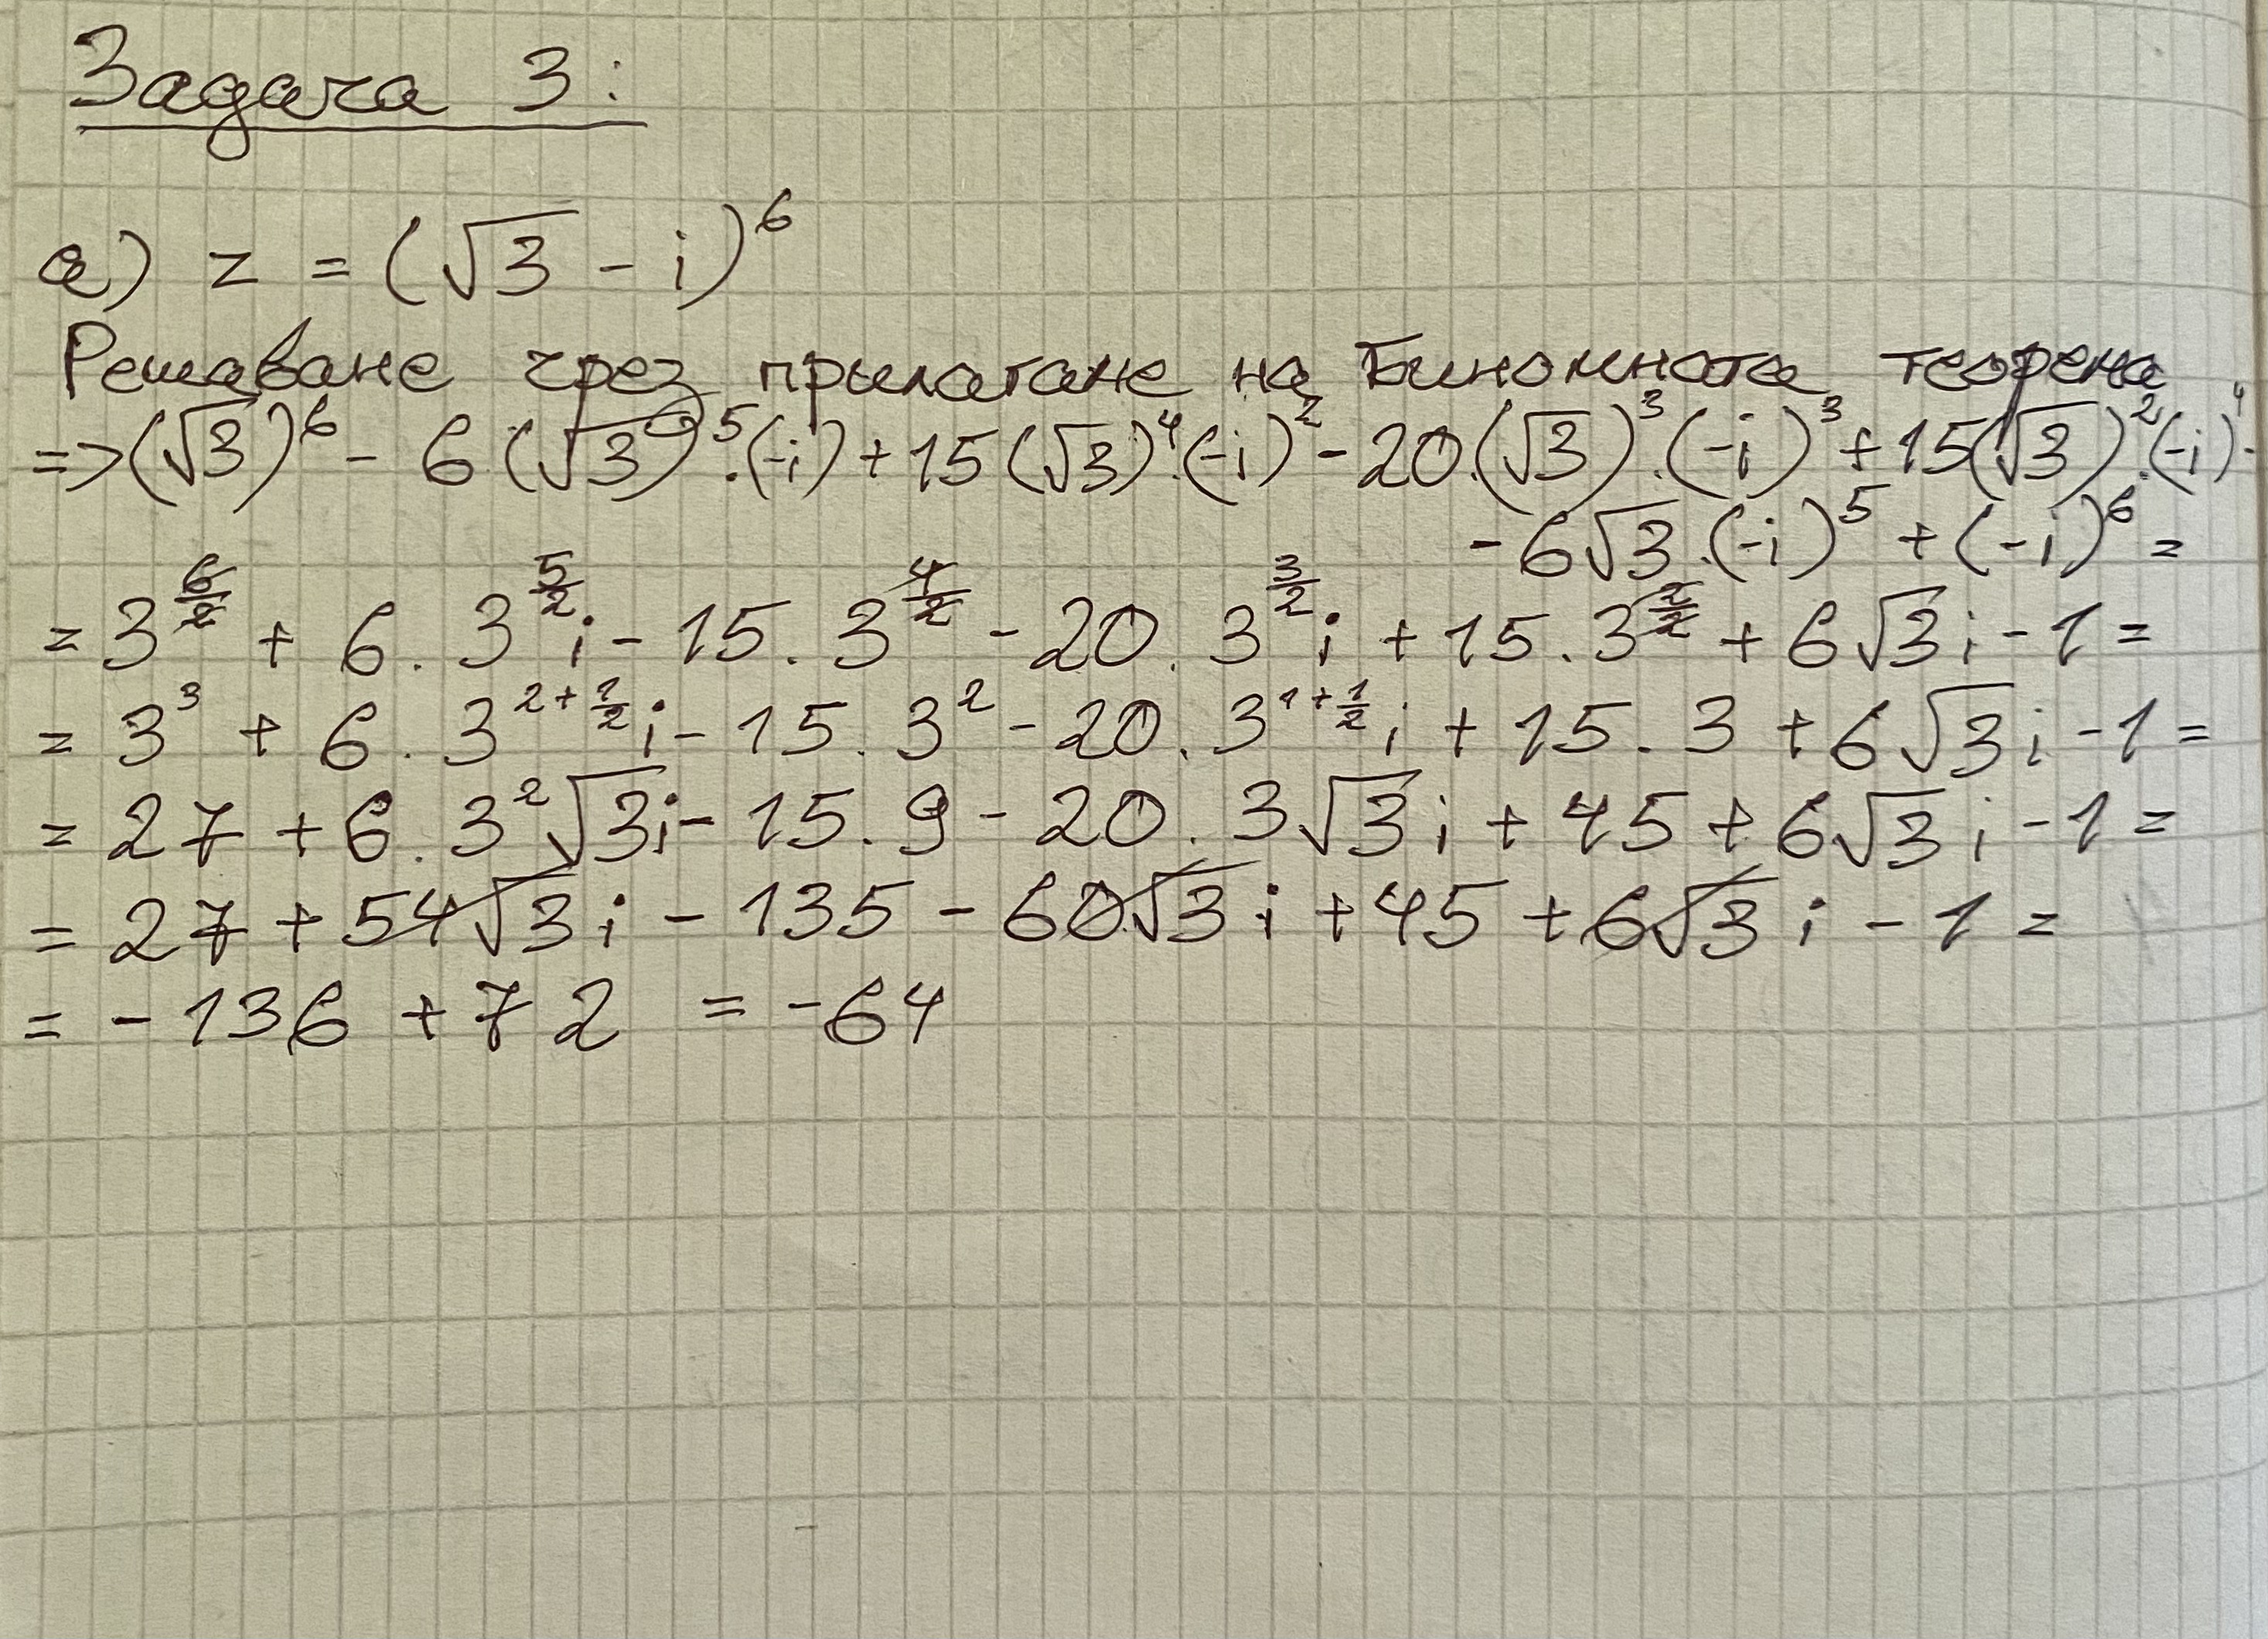 Задача 3:
а) z = (√3 - i)^6
Решаване чрез прилагане на Биномната теорема
=> (√3)^6 - 6.(√3)^5.(-i) + 15(√3)^4.(-i)^2 - 20.(√3)^3.(-i)^3 + 15(√3)^2.(-i)^4 -
- 6√3.(-i)^5 + (-i)^6 =
= 3^(6/2) + 6.3^(5/2)i - 15.3^(4/2) - 20.3^(3/2)i + 15.3^(2/2) + 6√3i - 1 =
= 3^3 + 6.3^(2+1/2)i - 15.3^2 - 20.3^(1+1/2)i + 15.3 + 6√3i - 1 =
= 27 + 6.3^2√3i - 15.9 - 20.3√3i + 45 + 6√3i - 1 =
= 27 + 54√3i - 135 - 60√3i + 45 + 6√3i - 1 =
= -136 + 72 = -64